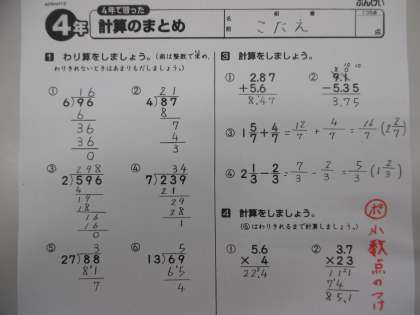 4年で習った
4年 計算のまとめ
名前
こたえ
点
1 わり算をしましょう。(商は整数で求め、
わりきれないときはあまりもだしましょう。)
① 16
6)96
6
36
36
0
② 21
4)87
8
7
4
3
③ 298
2)596
4
19
18
16
16
0
④ 34
7)239
21
29
28
1
⑤ 3
27)88
81
7
⑥ 5
13)69
65
4
3 計算をしましょう。
① 2.87
+5.6
8.47
② 9.1
-5.35
3.75
③ 1 5/7 + 4/7 = 12/7 + 4/7 = 16/7 (2 2/7)
④ 2 1/3 - 2/3 = 7/3 - 2/3 = 5/3 (1 2/3)
4 計算をしましょう。
(⑥はわりきれるまで計算しましょう。)
① 5.6
× 4
22.4
② 3.7
×23
111
74
85.1
ポ
小数点のつけ